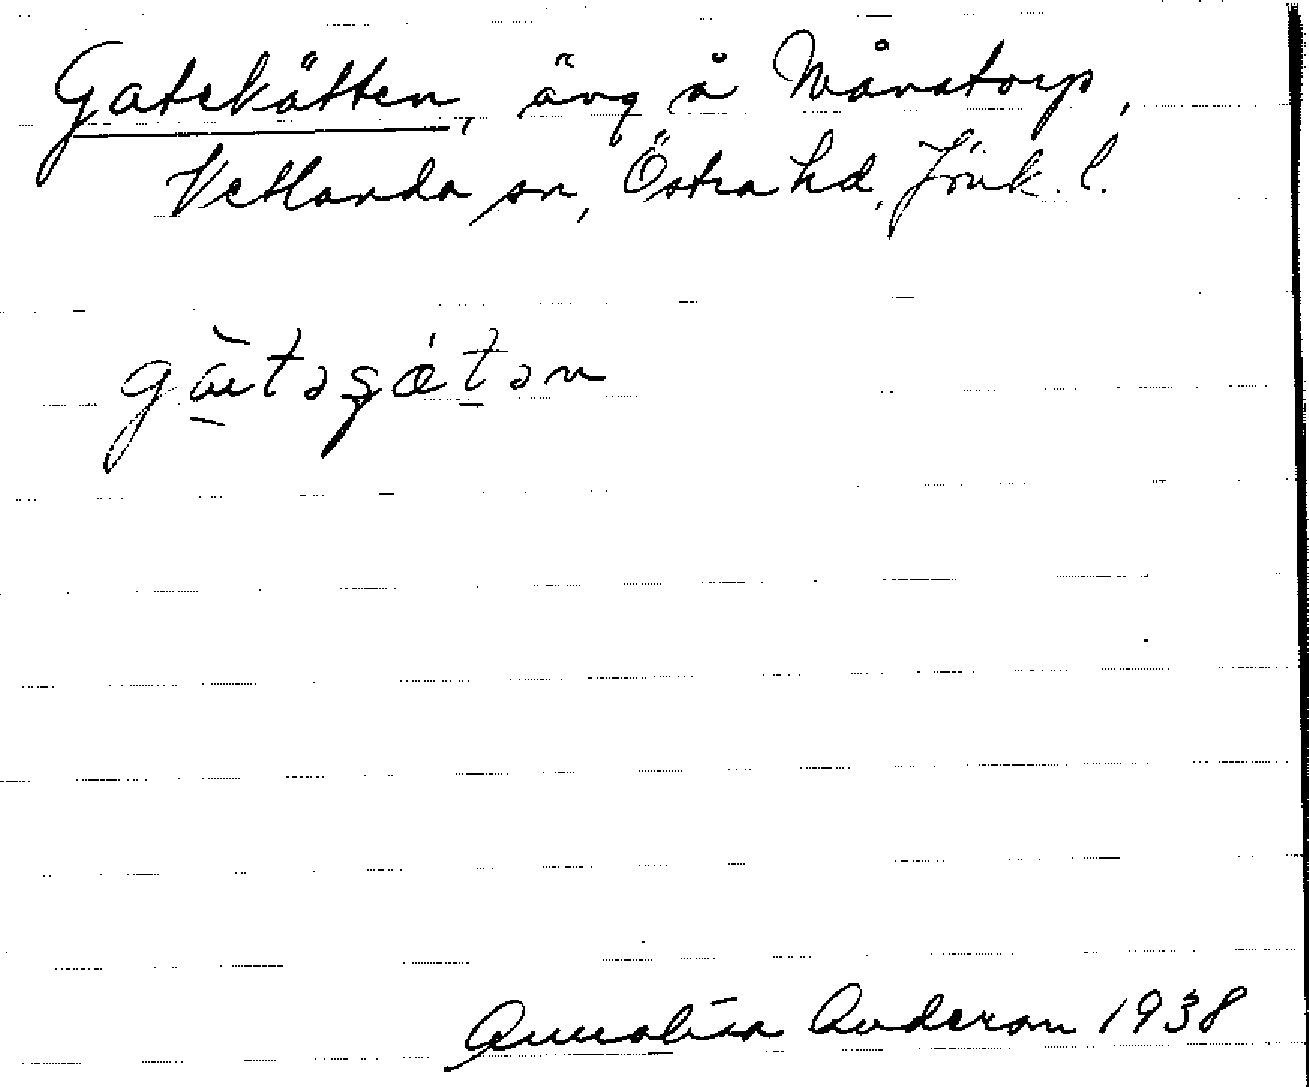 Gatekätten, äng å Månstorp,
Vetlanda sn, Östra hd, Jönk. l.
gàtəʂátən
Annalisa Anderson 1938